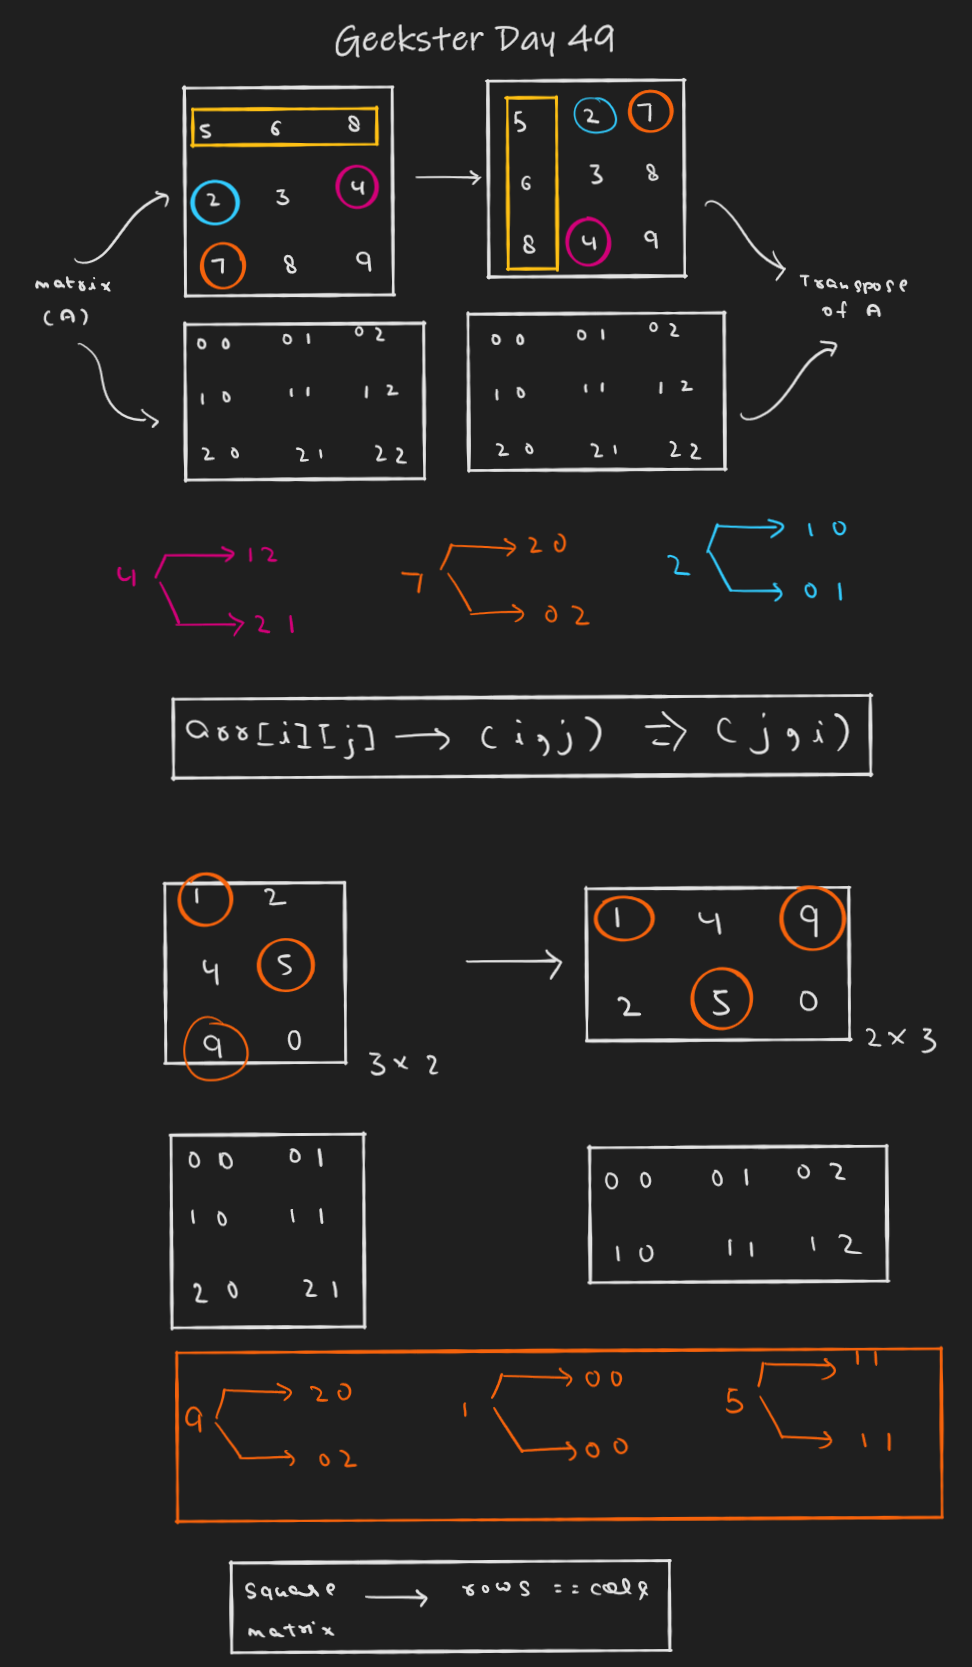 Geekster Day 49
5 6 8
2 3 4
7 8 9
5 2 7
6 3 8
8 4 9
matrix
(A)
Transpose
of A
00 01 02
10 11 12
20 21 22
00 01 02
10 11 12
20 21 22
4 12
21
7 20
02
2 10
01
arr[i][j] → (i,j) => (j,i)
1 2
4 5
9 0
3 x 2
1 4 9
2 5 0
2 x 3
00 01
10 11
20 21
00 01 02
10 11 12
9 20
02
1 00
00
5 11
11
square → rows == cols
matrix